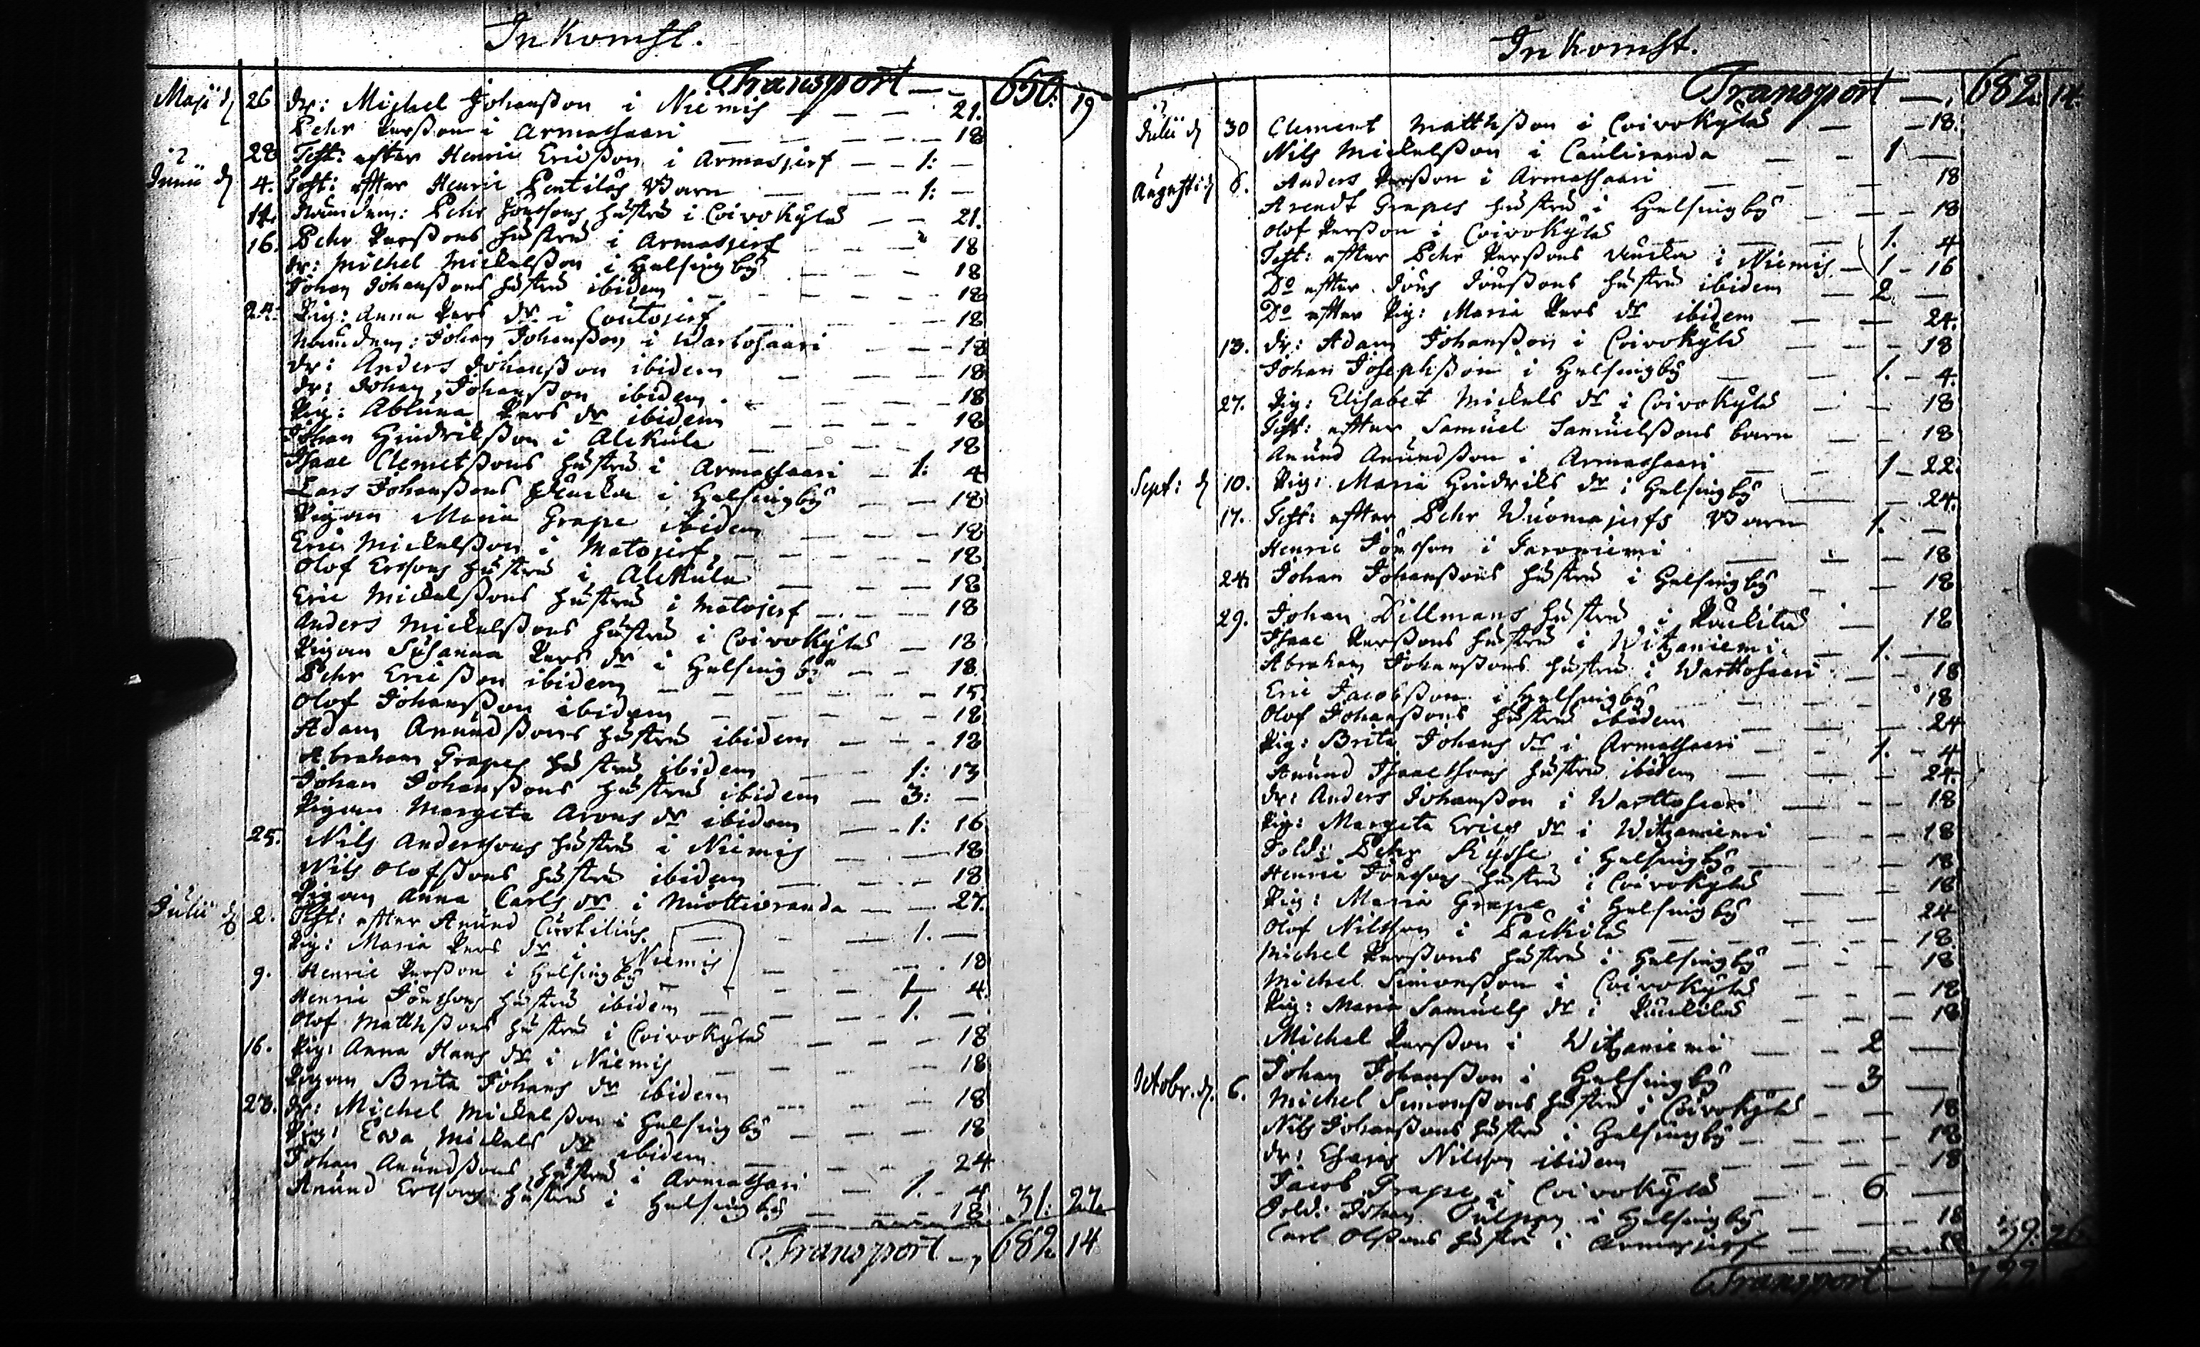 Inkomst.
Transport — 650: 19
Maji d 26 dr: Michel Johansson i Niemis — 21.
Pehr Persson i Armassaari — 18
28 Test: efter Henric Ericsson i Armasjerf — 1: —
Junii d 4. Test: efter Henric Pentiläs Barn — 1: —
14. Nämdem: Pehr Jönssons hustru i Coivokylä — 21.
16. Pehr Perssons hustru i Armasjerf — 18
dr: Michel Mickelsson i Helsingby — 18
Johan Johanssons hustru ibidem — 18
24. Pig: Anna Pers dr i Coutojerf — 18
Nämdem: Johan Johansson i Wartosaari — 18
dr: Anders Johansson ibidem — 18
dr: Johan Johansson ibidem — 18
Pig: Abluna Pers dr ibidem — 18
Johan Hindriksson i Alckula — 18
Isaac Clemetssons hustru i Armassaari — 1: 4
Lars Johanssons Encka i Helsingby — 18
Pigan Maria Grape ibidem — 18
Eric Mickelsson i Matojerf — 18
Olof Ersons hustru i Alckula — 18
Eric Mickelssons hustru i Matojerf — 18
Anders Mickelssons hustru i Coivokylä — 18
Pigan Susanna Pers dr i Helsingby — 18
Pehr Ericsson ibidem — 15
Olof Johansson ibidem — 18
Adam Anundssons hustru ibidem — 18
Abraham Grapes hustru ibidem — 1: 13
Johan Johanssons hustru ibidem — 3: —
Pigan Margeta Arons dr ibidem — 1: 16
25. Nils Anderssons hustru i Niemis — 18
Nils Olofssons hustru ibidem — 18
Pigan Anna Carls dr i Muottioranda — 27.
Julii d 2. Test: efter Anund Curtilius — 1. —
Pig: Maria Pers dr i Niemis — 18
9. Henric Persson i Helsingby — 1 4
Henric Jönssons hustru ibidem — 1. —
Olof Matthssons hustru i Coivokylä — 18
16. Pig: Anna Hans dr i Niemis — 18
Pigan Brita Johans dr ibidem — 18
23. dr: Michel Mickelsson i Helsingby — 18
Pig: Eva Mickels dr ibidem — 24
Johan Anundssons hustru i Armassaari — 1. 4
Anund Ersons hustru i Helsingby — 18 31: 27
Transport — 682 14
Inkomst.
Transport — 682. 14.
Julii d 30 Clement Matthsson i Coivokylä — 18.
Nils Mickelsson i Cauliranda — 1 —
Augusti d 6. Anders Persson i Armassaari — 18
Arendt Grapes hustru i Helsingby — 18
Olof Persson i Coivokylä — 1. 4
Test: efter Pehr Perssons Encka i Niemis — 1 — 16
Do efter Jöns Jönssons hustru ibidem — 2 —
Do efter Pig: Maria Pers dr ibidem — 24.
13. dr: Adam Johansson i Coivokylä — 18
Johan Josephsson i Helsingby — 1. 4.
27. Pig: Elisabet Mickels dr i Coivokylä — 18
Test: efter Samuel Samuelssons barn — 18
Anund Anundsson i Armassaari — 1 — 22.
Sept: d 10. Pig: Maria Hindriks dr i Helsingby — 24.
17. Test: efter Pehr Wuomajerfs Barn — 1. —
Henric Jönsson i Jaroniemi — 18
24. Johan Johanssons hustru i Helsingby — 18
29. Johan Dillmans hustru i Päckilä — 18
Isaac Perssons hustru i Witzaniemi — 1. —
Abraham Johanssons hustru i Warttosaari — 18
Eric Jacobsson i Helsingby — 18
Olof Johanssons hustru ibidem — 24
Pig: Brita Johans dr i Armassaari — 1. — 4
Anund Isacssons hustru ibidem — 24.
dr: Anders Johansson i Warttosaari — 18
Pig: Margeta Erics dr i Witzaniemi — 18
Sold: Pehr Rysse i Helsingby — 18
Henric Jönssons hustru i Coivokylä — 18
Pig: Maria Grape i Helsingby — 24
Olof Nilsson i Päckilä — 18
Michel Perssons hustru i Helsingby — 18
Michel Simonsson i Coivokylä — 18
Pig: Maria Samuels dr i Päckilä — 18
Michel Persson i Witzaniemi — 2 —
Octobr. d. 6. Johan Johansson i Helsingby — 3 —
Michel Simonssons hustru i Coivokylä — 18
Nils Johanssons hustru i Helsingby — 18
dr: Esaias Nilsson ibidem — 18
Jacob Grape i Coivokylä — 6 —
Sold: Johan i Helsingby — 18
Carl Olssons hustru i Armasjerf — 18 39: 26
Transport — 722